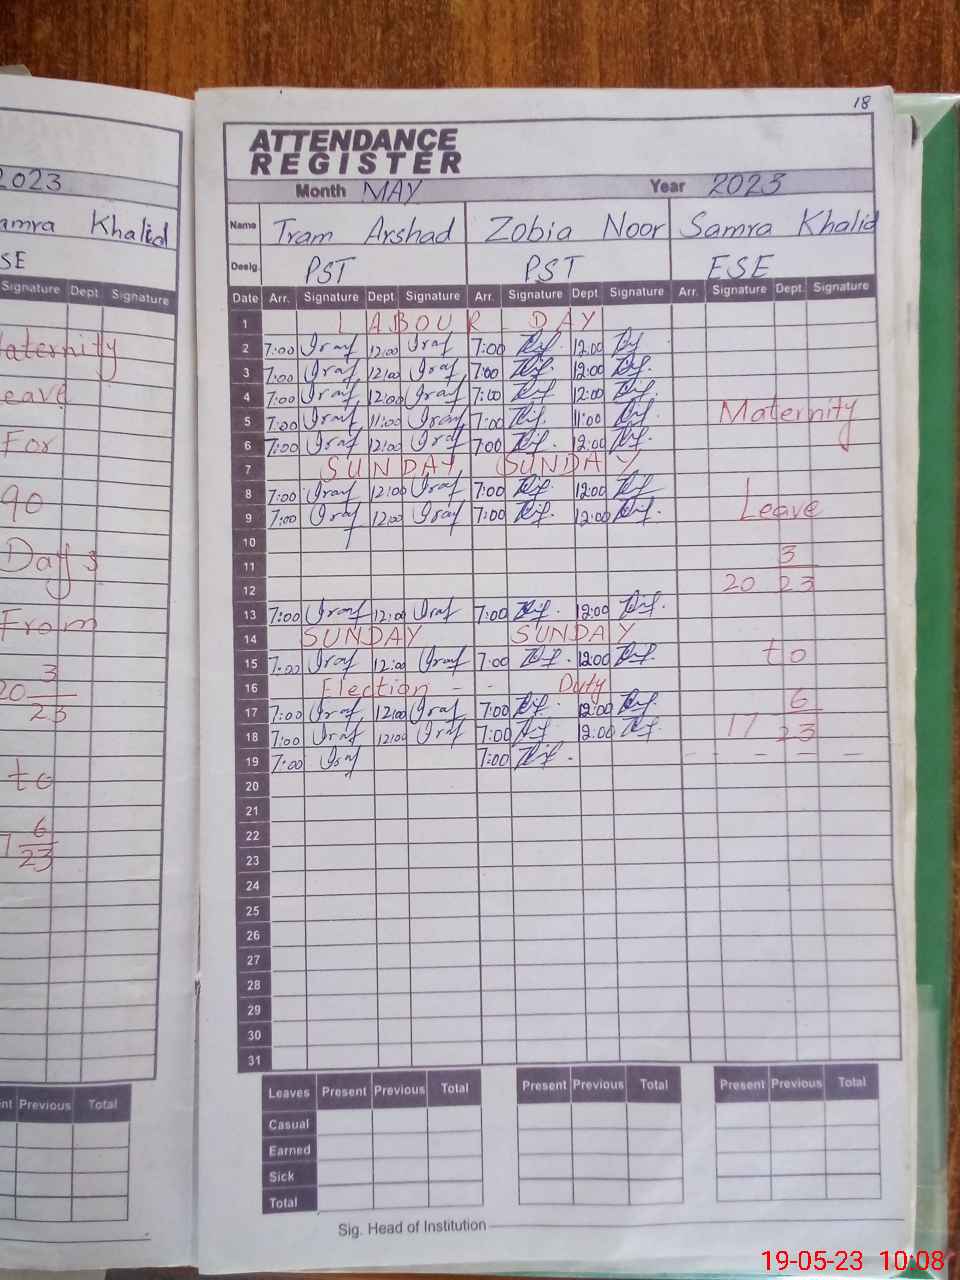 18
ATTENDANCE
REGISTER
2023
Month MAY Year 2023
amra Khalid
Name Iram Arshad Zobia Noor Samra Khalid
SE
Desig. PST PST ESE
Signature Dept Signature
Date Arr. Signature Dept Signature Arr. Signature Dept Signature Arr. Signature Dept. Signature
1 LABOUR DAY
2 7:00 Iraf 12:00 Iraf 7:00 12:00
3 7:00 Iraf 12:00 Iraf 7:00 12:00
4 7:00 Iraf 12:00 Iraf 7:00 12:00
5 7:00 Iraf 11:00 Iraf 7:00 11:00
6 7:00 Iraf 12:00 Iraf 7:00 12:00
7 SUNDAY SUNDAY
8 7:00 Iraf 12:00 Iraf 7:00 12:00
9 7:00 Iraf 12:00 Iraf 7:00 12:00
10
11
12
13 7:00 Iraf 12:00 Iraf 7:00 12:00
14 SUNDAY SUNDAY
15 7:00 Iraf 12:00 Iraf 7:00 12:00
16 Election - - Duty
17 7:00 Iraf 12:00 Iraf 7:00 12:00
18 7:00 Iraf 12:00 Iraf 7:00 12:00
19 7:00 Iraf 7:00
20
21
22
23
24
25
26
27
28
29
30
31
Maternity
Leave
3
20 23
to
6
17 23
- - - - -
aternity
eave
For
90
Days
From
3
20 23
to
6
7 23
Leaves Present Previous Total Present Previous Total Present Previous Total
Casual
Earned
Sick
Total
nt Previous Total
Sig. Head of Institution
19-05-23 10:08